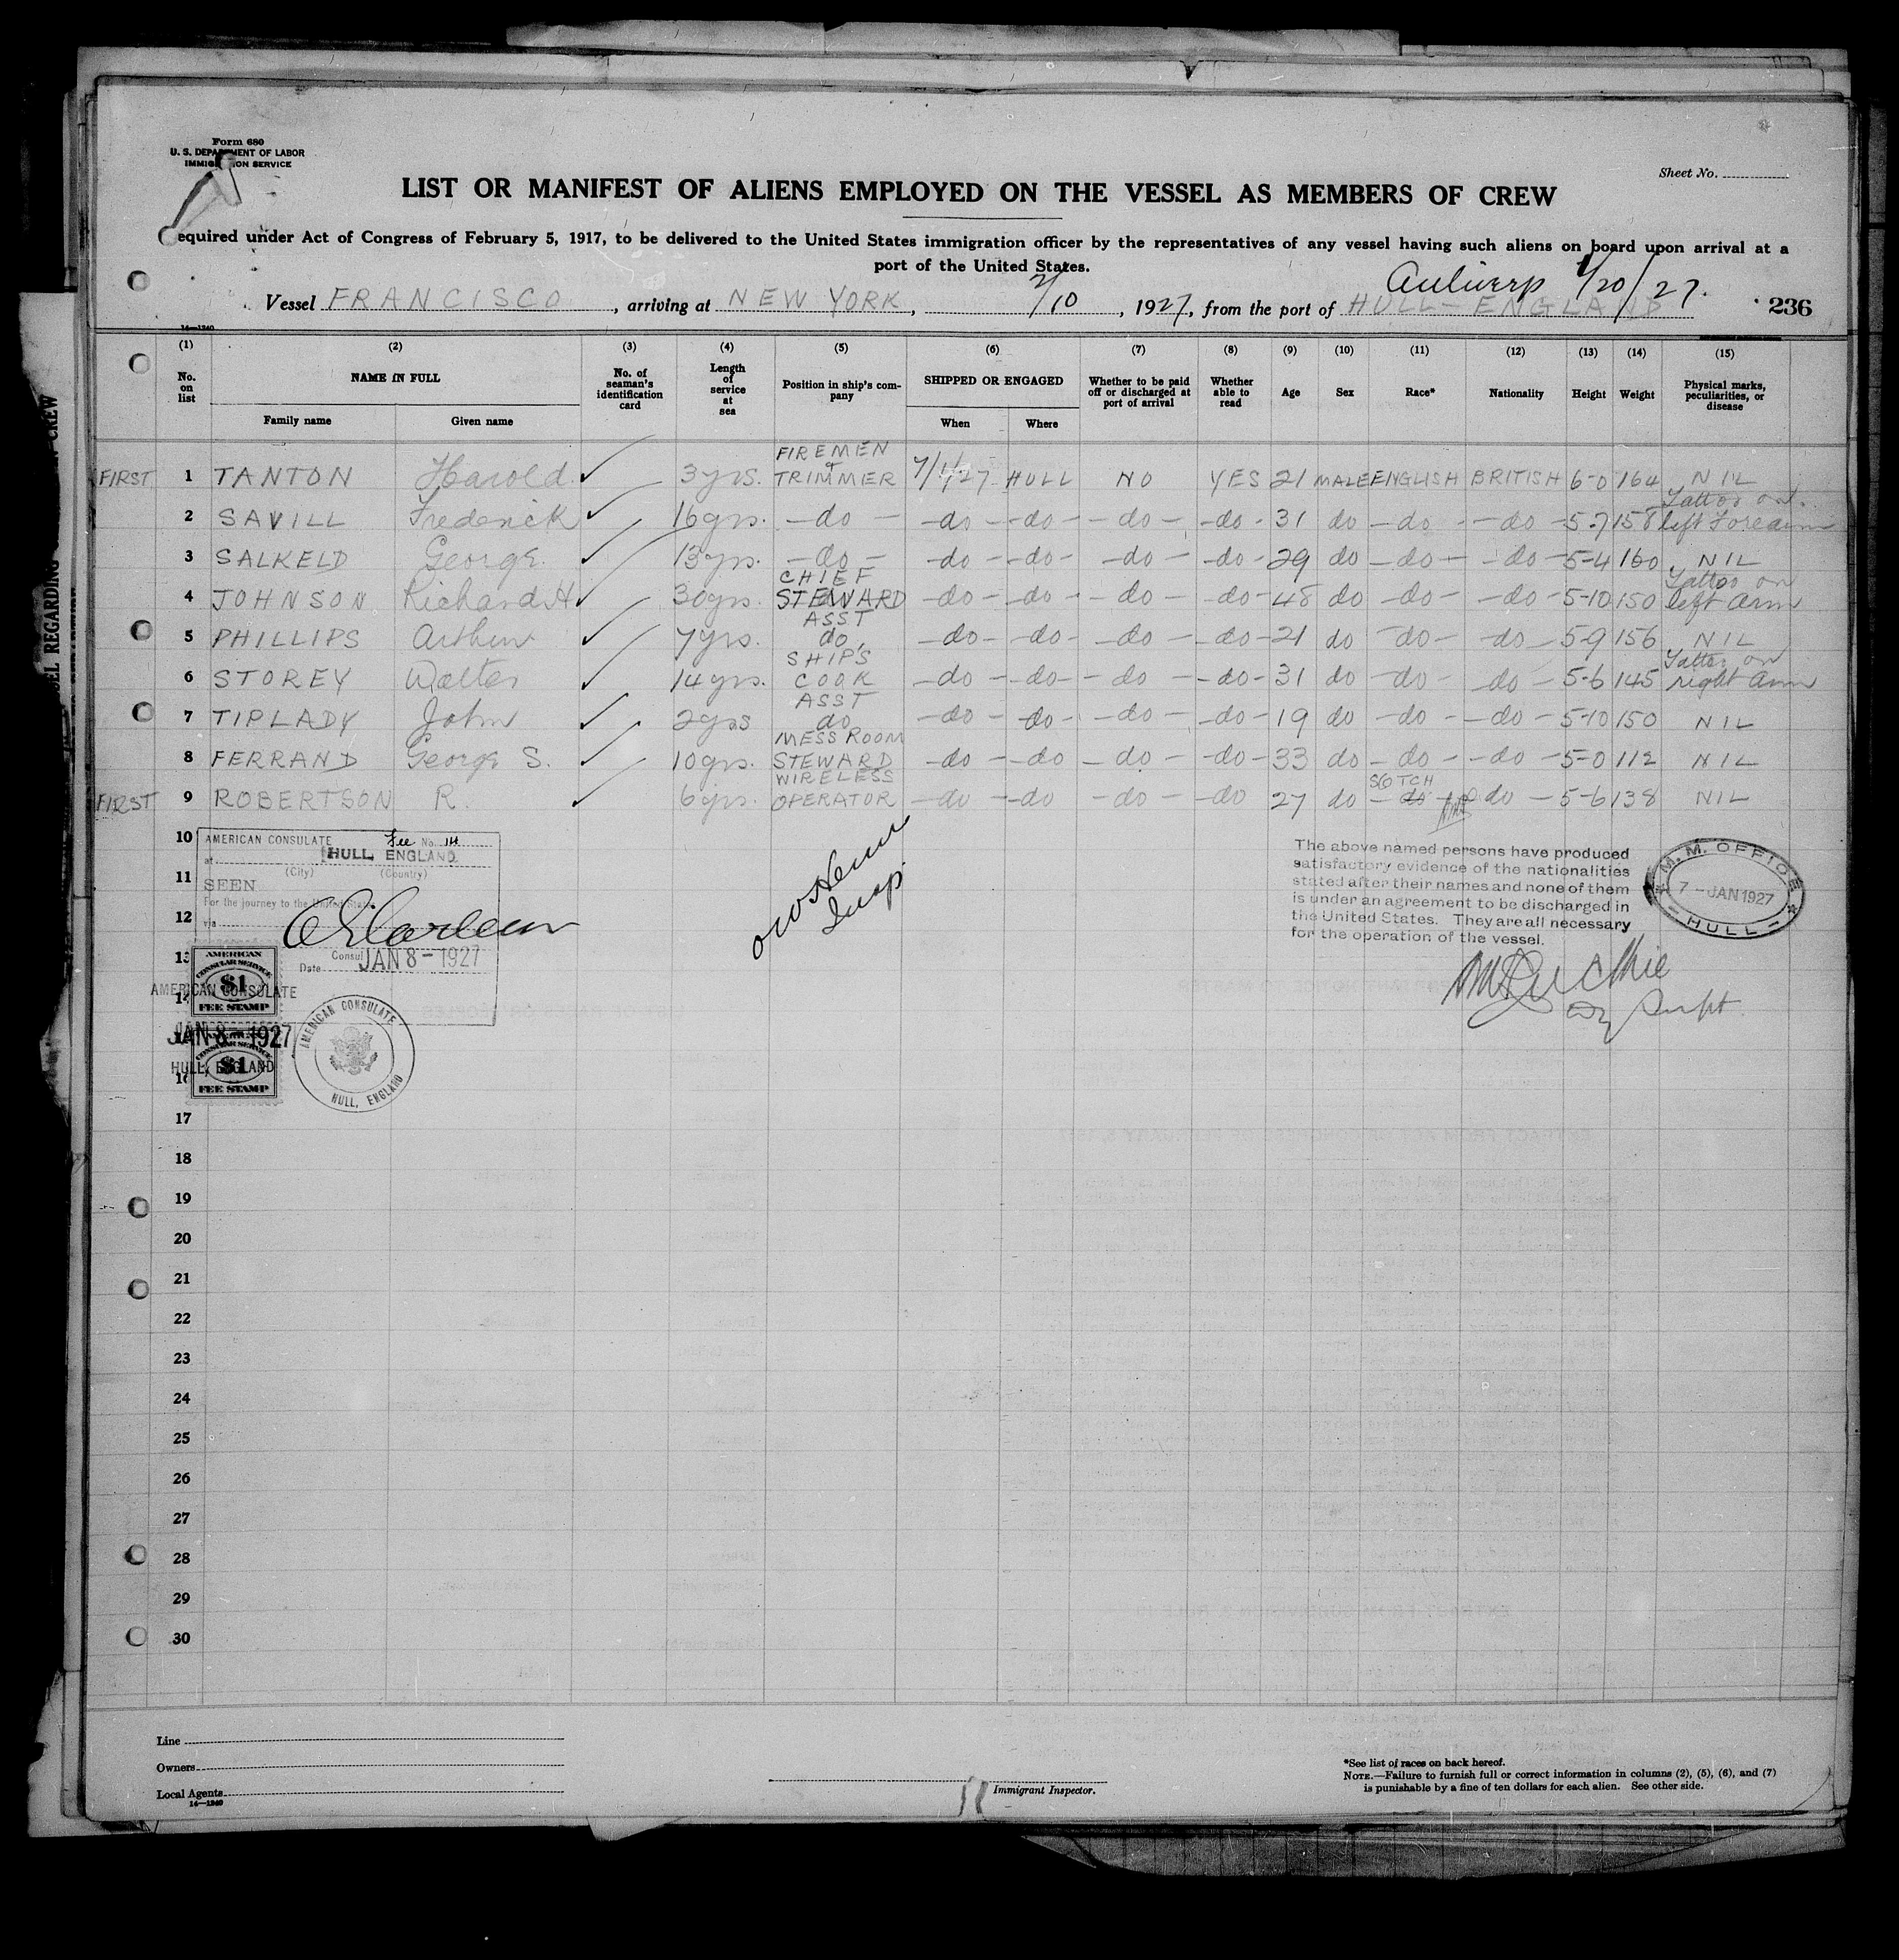 Form 680
U. S. DEPARTMENT OF LABOR
IMMIGRATION SERVICE
Sheet No.
LIST OR MANIFEST OF ALIENS EMPLOYED ON THE VESSEL AS MEMBERS OF CREW
equired under Act of Congress of February 5, 1917, to be delivered to the United States immigration officer by the representatives of any vessel having such aliens on board upon arrival at a
port of the United States.
Antwerp 1/20/27.
Vessel FRANCISCO, arriving at NEW YORK, 2/10, 1927, from the port of HULL - ENGLAND 236
14—1240
(1) (2) (3) (4) (5) (6) (7) (8) (9) (10) (11) (12) (13) (14) (15)
No. on list NAME IN FULL Family name Given name No. of seaman's identification card Length of service at sea Position in ship's company SHIPPED OR ENGAGED When Where Whether to be paid off or discharged at port of arrival Whether able to read Age Sex Race* Nationality Height Weight Physical marks, peculiarities, or disease
FIRST 1 TANTON Harold 3 yrs. FIREMEN & TRIMMER 7/1/27 HULL NO YES 21 MALE ENGLISH BRITISH 6-0 164 NIL
2 SAVILL Frederick 16 yrs. -do- -do- -do- -do- -do- 31 do -do- -do- 5-7 158 Tattoo on left Forearm
3 SALKELD George 13 yrs. -do- -do- -do- -do- -do- 29 do -do- -do- 5-4 160 NIL
4 JOHNSON Richard H. 30 yrs. CHIEF STEWARD -do- -do- -do- -do- 48 do -do- -do- 5-10 150 Tattoo on left arm
5 PHILLIPS Arthur 7 yrs. ASST do. -do- -do- -do- -do- 21 do -do- -do- 5-9 156 NIL
6 STOREY Walter 14 yrs. SHIP'S COOK -do- -do- -do- -do- 31 do -do- -do- 5-6 145 Tattoo on right arm
7 TIPLADY John 2 yrs ASST do -do- -do- -do- -do- 19 do -do- -do- 5-10 150 NIL
8 FERRAND George S. 10 yrs. MESS ROOM STEWARD -do- -do -do- -do- 33 do -do- -do- 5-0 112 NIL
FIRST 9 ROBERTSON R. 6 yrs. WIRELESS OPERATOR -do -do -do- -do 27 do SCOTCH do do 5-6 138 NIL
10
11
12
13
14
16
17
18
19
20
21
22
23
24
25
26
27
28
29
30
AMERICAN CONSULATE Fee No. 14
at HULL, ENGLAND
(City) (Country)
SEEN
For the journey to the United States
via
Consul
Date JAN 8 - 1927
AMERICAN CONSULAR SERVICE $1 FEE STAMP
AMERICAN CONSULATE
JAN 8 - 1927
HULL, ENGLAND
CONSULAR SERVICE $1 FEE STAMP
AMERICAN CONSULATE HULL, ENGLAND
Insp.
The above named persons have produced
satisfactory evidence of the nationalities
stated after their names and none of them
is under an agreement to be discharged in
the United States. They are all necessary
for the operation of the vessel.
M. M. OFFICE
7 - JAN 1927
HULL
Dy Supt.
Line
Owners
Local Agents
14—1240
Immigrant Inspector.
*See list of races on back hereof.
NOTE.—Failure to furnish full or correct information in columns (2), (5), (6), and (7)
is punishable by a fine of ten dollars for each alien. See other side.